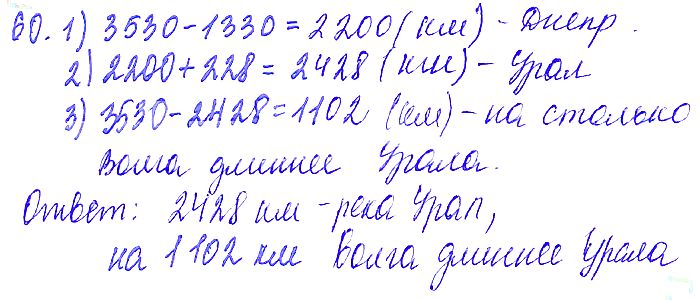 60. 1) 3530-1330=2200(км)-Днепр.
2) 2200+228=2428(км)-Урал
3) 3530-2428=1102 (км)-на столько
Волга длиннее Урала.
Ответ: 2428 км-река Урал,
на 1102 км Волга длиннее Урала